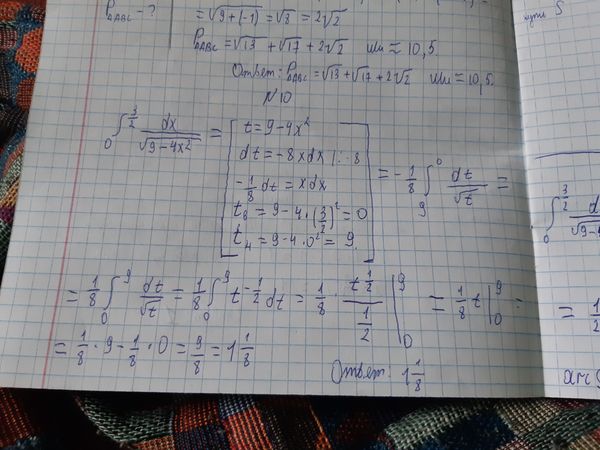 P△ABC - ?
= √9+(-1) = √3 = 2√2
P△ABC = √13 + √17 + 2√2 или ≈ 10,5.
Ответ: P△ABC = √13 + √17 + 2√2 или ≈ 10,5.
N10
∫₀^(3/2) dx/√(9-4x²) = [t = 9-4x²
dt = -8xdx |:-8
-1/8 dt = xdx
tв = 9-4·(3/2)² = 0
tн = 9-4·0² = 9] = -1/8 ∫₉⁰ dt/√t =
= 1/8 ∫₀⁹ dt/√t = 1/8 ∫₀⁹ t^(-1/2) dt = 1/8 t^(1/2)/(1/2) |₀⁹ = 1/8 t |₀⁹ =
= 1/8 · 9 - 1/8 · 0 = 9/8 = 1 1/8
Ответ: 1 1/8
S
∫₀^(3/2)
= 1/2